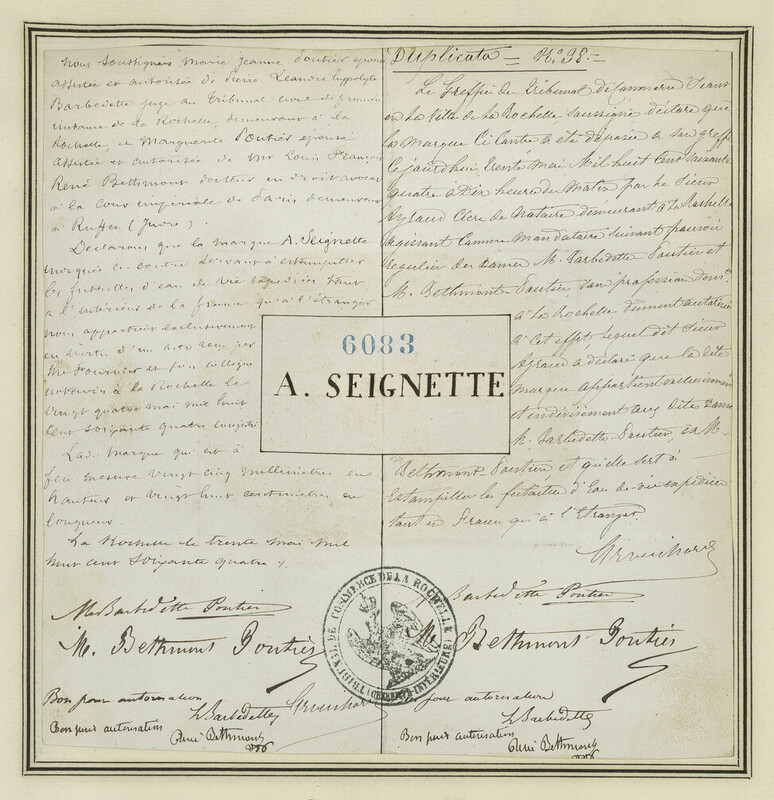 Nous soussignés Marie Jeanne Poutier épouse
assistée et autorisée de Pierre Léandre hyppolyte
Barbedette juge au Tribunal civil de première
instance de la Rochelle, demeurant à la
Rochelle, et Marguerite Poutier épouse
assistée et autorisée de Mr Louis François
René Bethmont docteur en droit avocat
à la Cour impériale de Paris demeurant
à Ruffec
Déclarons que la marque A. Seignette
marquée ci contre servant à estampiller
les futailles d'eau de vie expédiées tant
à l'intérieur de la france qu'à l'étranger
nous appartient exclusivement
en vertu d'un acte reçu par
Me Fournier et son collègue
notaires à la Rochelle le
vingt quatre mai mil huit
cent soixante quatre enregistré
Lad. marque qui est à
feu mesure vingt cinq millimètres en
hauteur et vingt huit centimètres en
longueur.
La Rochelle le trente mai mil
huit cent soixante quatre
M Barbedette Poutier
M. Bethmont Poutier
Bon pour autorisation
L Barbedette
Bon pour autorisation
René Bethmont
Duplicata = No. 98. =
Le Greffier du Tribunal de Commerce séant
en la Ville de la Rochelle soussigné déclare que
la marque ci contre a été déposée à son greffe
cejourdhui trente Mai Mil huit Cent soixante
quatre à dix heures du Matin par le Sieur
Ayraud Clerc de Notaire demeurant à La Rochelle
agissant comme Mandataire suivant pouvoir
régulier des Dames M. Barbedette Poutier et
M. Bethmont Poutier sans profession demt.
à La Rochelle dument autorisées
à cet effet, lequel dit Sieur
Ayraud a déclaré que la dite
marque appartient exclusivement
et indivisément aux dites Dames
M. Barbedette Poutier, et M.
Bethmont Poutier et qu'elle sert à
estampiller les futailles d'eau-de-vie expédiées
tant en France qu'à l'étranger
Barbedette Poutier
M. Bethmont Poutier
Bon pour autorisation
L Barbedette
Bon pour autorisation
René Bethmont
6083
A. SEIGNETTE
TRIBUNAL DE COMMERCE DE LA ROCHELLE
(CHARENTE INFÉRIEURE)